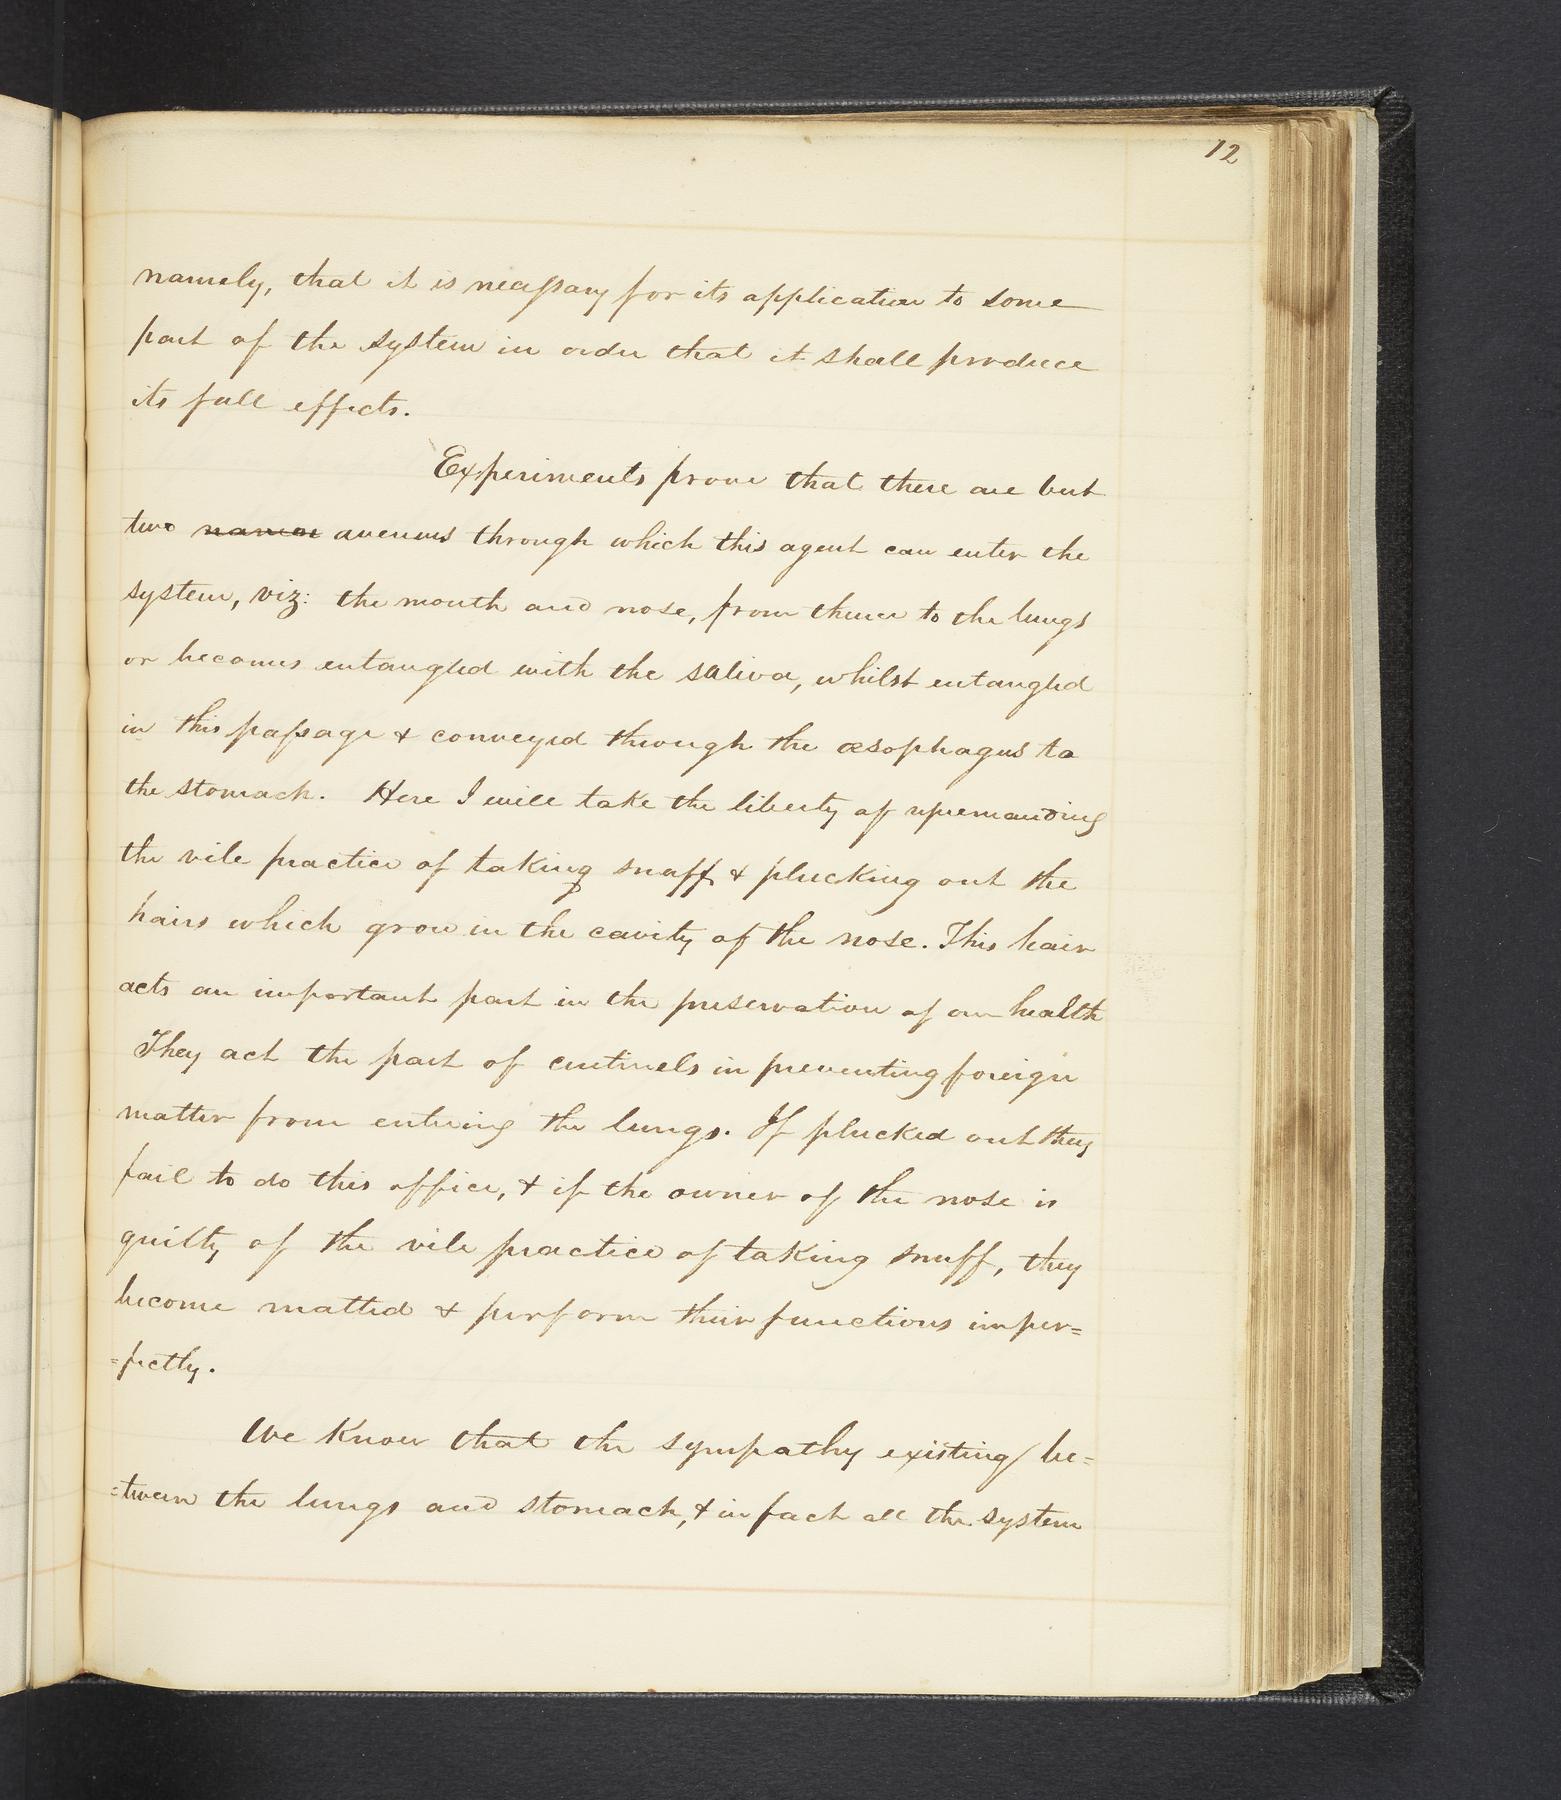 12
namely, that it is necessary for its application to some
part of the system in order that it shall produce
its full effects.
Experiments prove that there are but
two avenues through which this agent can enter the
system, viz: the mouth and nose, from thence to the lungs
or becomes entangled with the saliva, whilst entangled
in this passage & conveyed through the œsophagus to
the stomach. Here I will take the liberty of repremanding
the vile practice of taking snuff & plucking out the
hairs which grow in the cavity of the nose. This hair
acts an important part in the preservation of our health
They act the part of centinels in preventing foreign
matter from entering the lungs. If plucked out they
fail to do this office, & if the owner of the nose is
guilty of the vile practice of taking snuff, they
become matted & perform their functions imper=
=fectly.
We Know that the sympathy existing be=
=tween the lungs and stomach, & in fact all the system